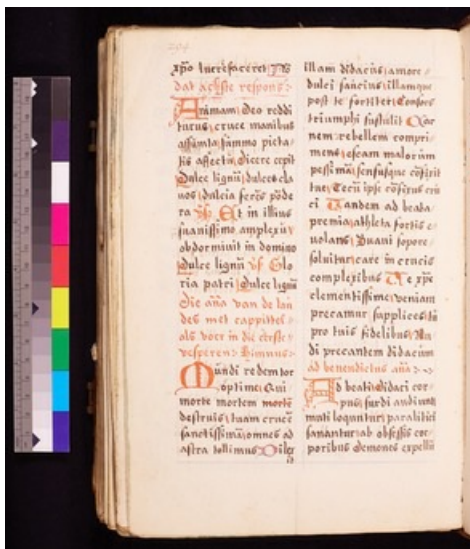 294
xp̄o lucrefaceret
dat achste respons
Animam deo reddi
turus cruce manibus
assumta summo pieta
tis affectu dicere cepit
Dulce lignū dulces cla
uos dulcia ferēs pōde
ra Et in illius
suauissimo amplexu
obdormiuit in domino
Dulce lignū Glo
ria patri Dulce lignū
Die āna van de lau
des met cappittel
als voer in die eerste
vesperen Himnus
Mundi redemtor
optime Qui
morte mortem
destruis tuam crucē
sanctissimā omnes ad
astra tollimus
illam didacus amore
dulci saucius illamque
post te fortiter Consors
triumphi sustulit Car
nem rebellem compri
mens escam malorum
pessimā sensusque cōfixit
Tecū ipse cōfixus cru
ci Tandem ad beata
premia athleta fortis e
uolans Suaui sopore
soluitur care in crucis
complexibus Te xpe
clementissime veniam
precamur supplices tu
pro tuis fidelibus Au
di precantem didacum
ad benedictus āna
Ad beati didaci cor
pus surdi audiunt
muti loquntur paralitici
sanantur ab obsessis cor
poribus demones expellū